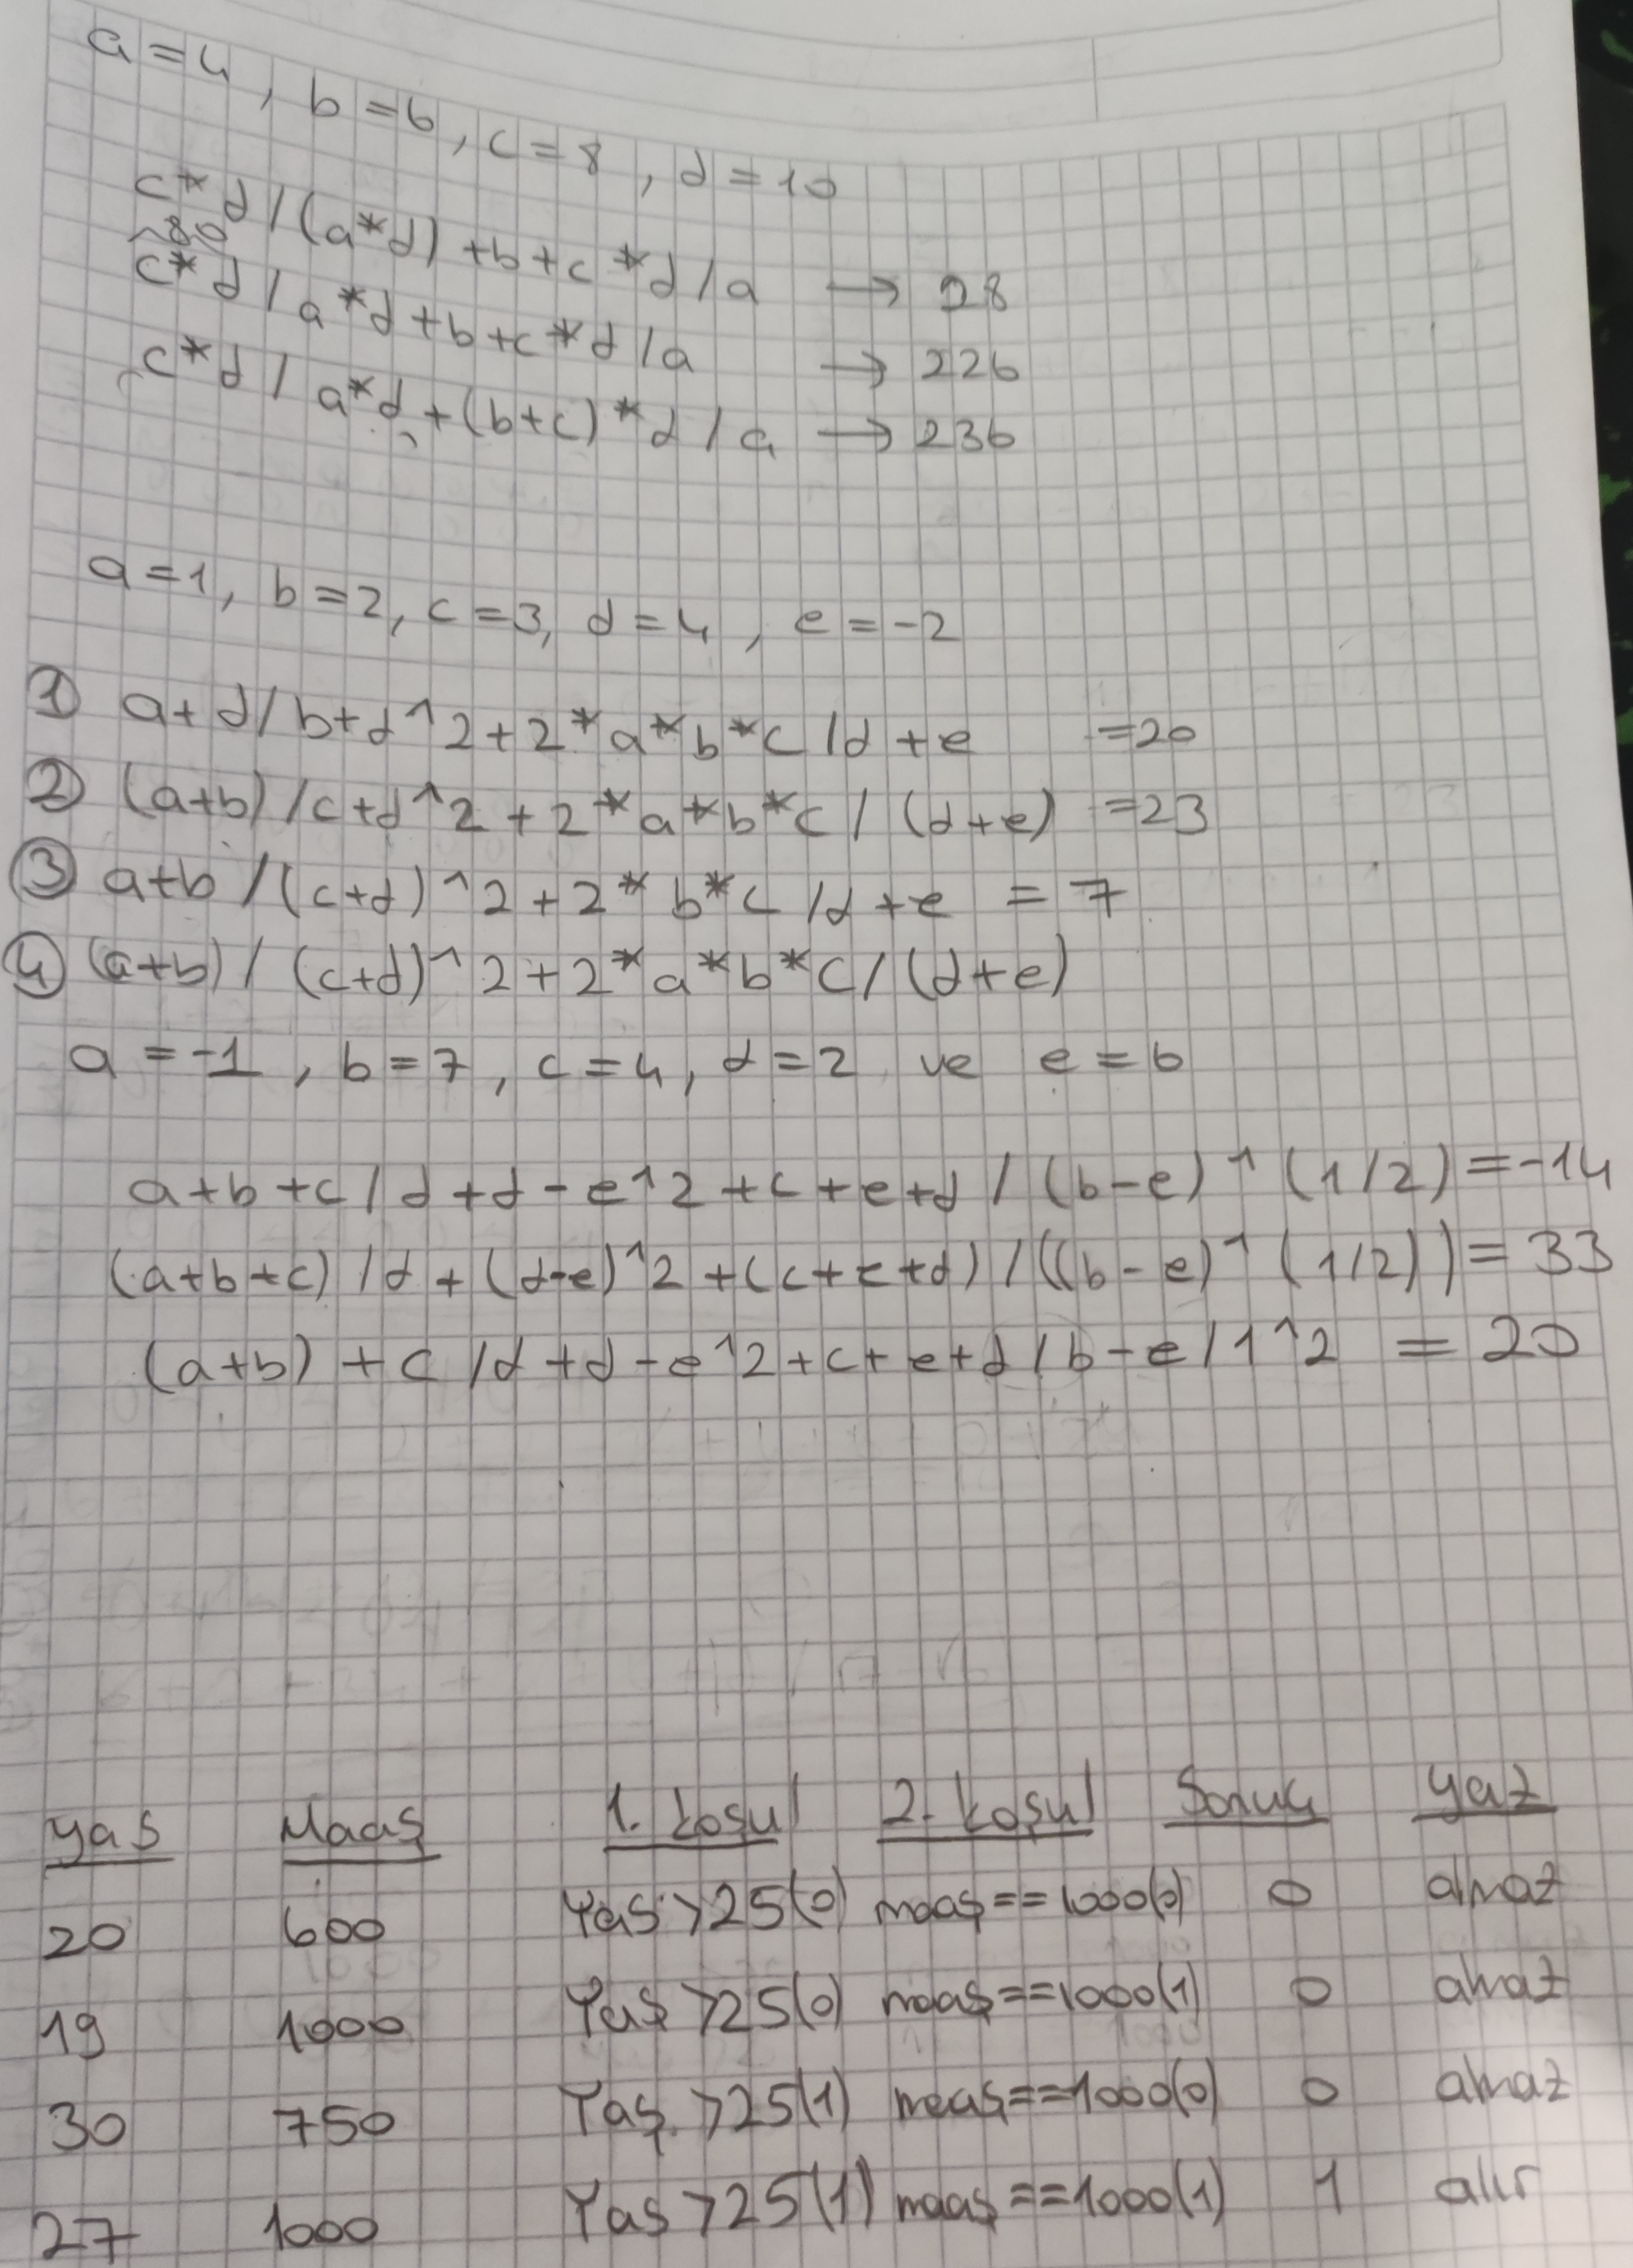 a=4, b=6, c=8, d=10
c*d/(a*d)+b+c*d/a → 28
80
c*d/a*d+b+c*d/a → 226
c*d/a*d+(b+c)*d/a → 236
a=1, b=2, c=3, d=4, e=-2
① a+d/b+d^2+2*a*b*c/d+e =20
② (a+b)/c+d^2+2*a*b*c/(d+e) =23
③ a+b/(c+d)^2+2*b*c/d+e = 7
④ (a+b)/(c+d)^2+2*a*b*c/(d+e)
a=-1, b=7, c=4, d=2 ve e=6
a+b+c/d+d-e^2+c+e+d/(b-e)^(1/2)=-14
(a+b+c)/d+(d-e)^2+(c+e+d)/((b-e)^(1/2))=33
(a+b)+c/d+d-e^2+c+e+d/b-e/1^2 = 20
yas Maaş 1. koşul 2. koşul Sonuç yaz
20 600 Yaş>25(0) maaş==1000(0) 0 almaz
19 1000 Yaş>25(0) maaş==1000(1) 0 almaz
30 750 Yaş>25(1) maaş==1000(0) 0 almaz
27 1000 Yaş>25(1) maaş==1000(1) 1 alır